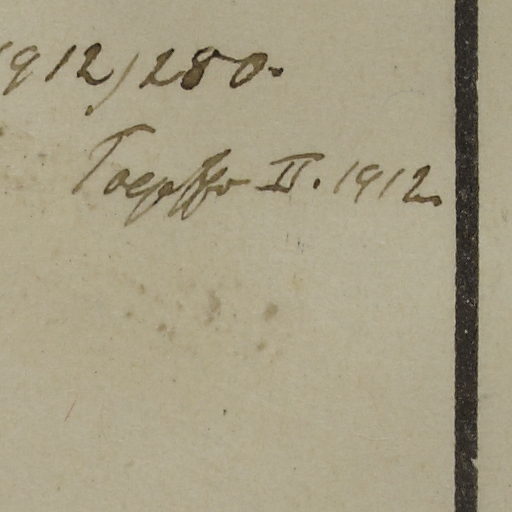 1912/280.
Toepffer II. 1912.